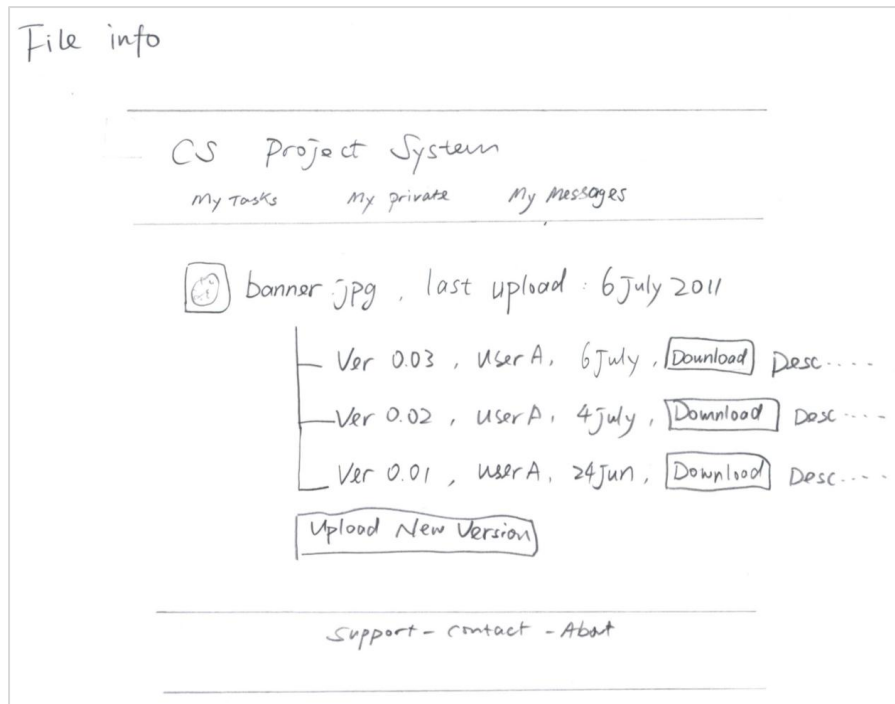 File info
CS Project System
My Tasks My private My Messages
banner.jpg , last upload : 6 July 2011
Ver 0.03 , User A, 6 July , Download Desc....
Ver 0.02 , User A, 4 July , Download Desc....
Ver 0.01 , User A, 24 Jun, Download Desc....
Upload New Version
Support - Contact - About